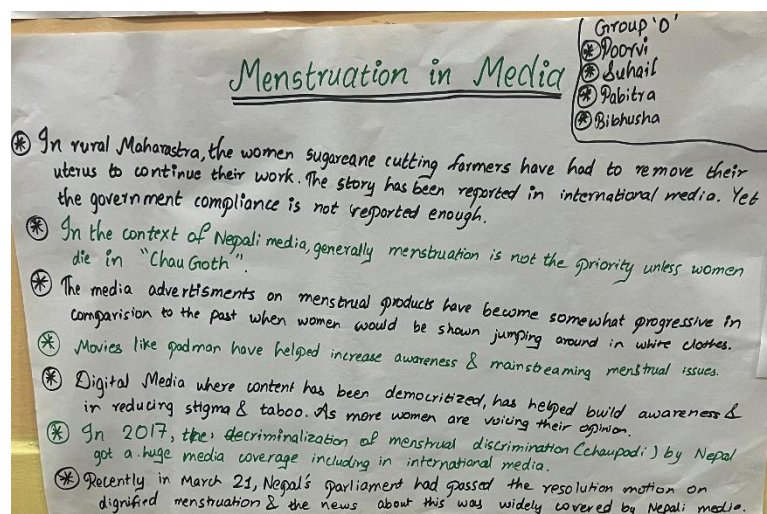 Group 'D'
⊛ Poorvi
⊛ Suhail
⊛ Pabitra
⊛ Bibhusha
Menstruation in Media
⊛ In rural Maharastra, the women sugarcane cutting farmers have had to remove their
uterus to continue their work. The story has been reported in international media. Yet
the government compliance is not reported enough.
⊛ In the context of Nepali media, generally menstruation is not the priority unless women
die in "Chau Goth".
⊛ The media advertisments on menstrual products have become somewhat progressive in
comparision to the past when women would be shown jumping around in white clothes.
⊛ Movies like padman have helped increase awareness & mainstreaming menstrual issues.
⊛ Digital Media where content has been democritized, has helped build awareness &
in reducing stigma & taboo. As more women are voicing their opinion.
⊛ In 2017, the decriminalization of menstrual discrimination (chaupadi) by Nepal
got a huge media coverage including in international media.
⊛ Recently in March 21, Nepal's parliament had passed the resolution motion on
dignified menstruation & the news about this was widely covered by Nepali media.